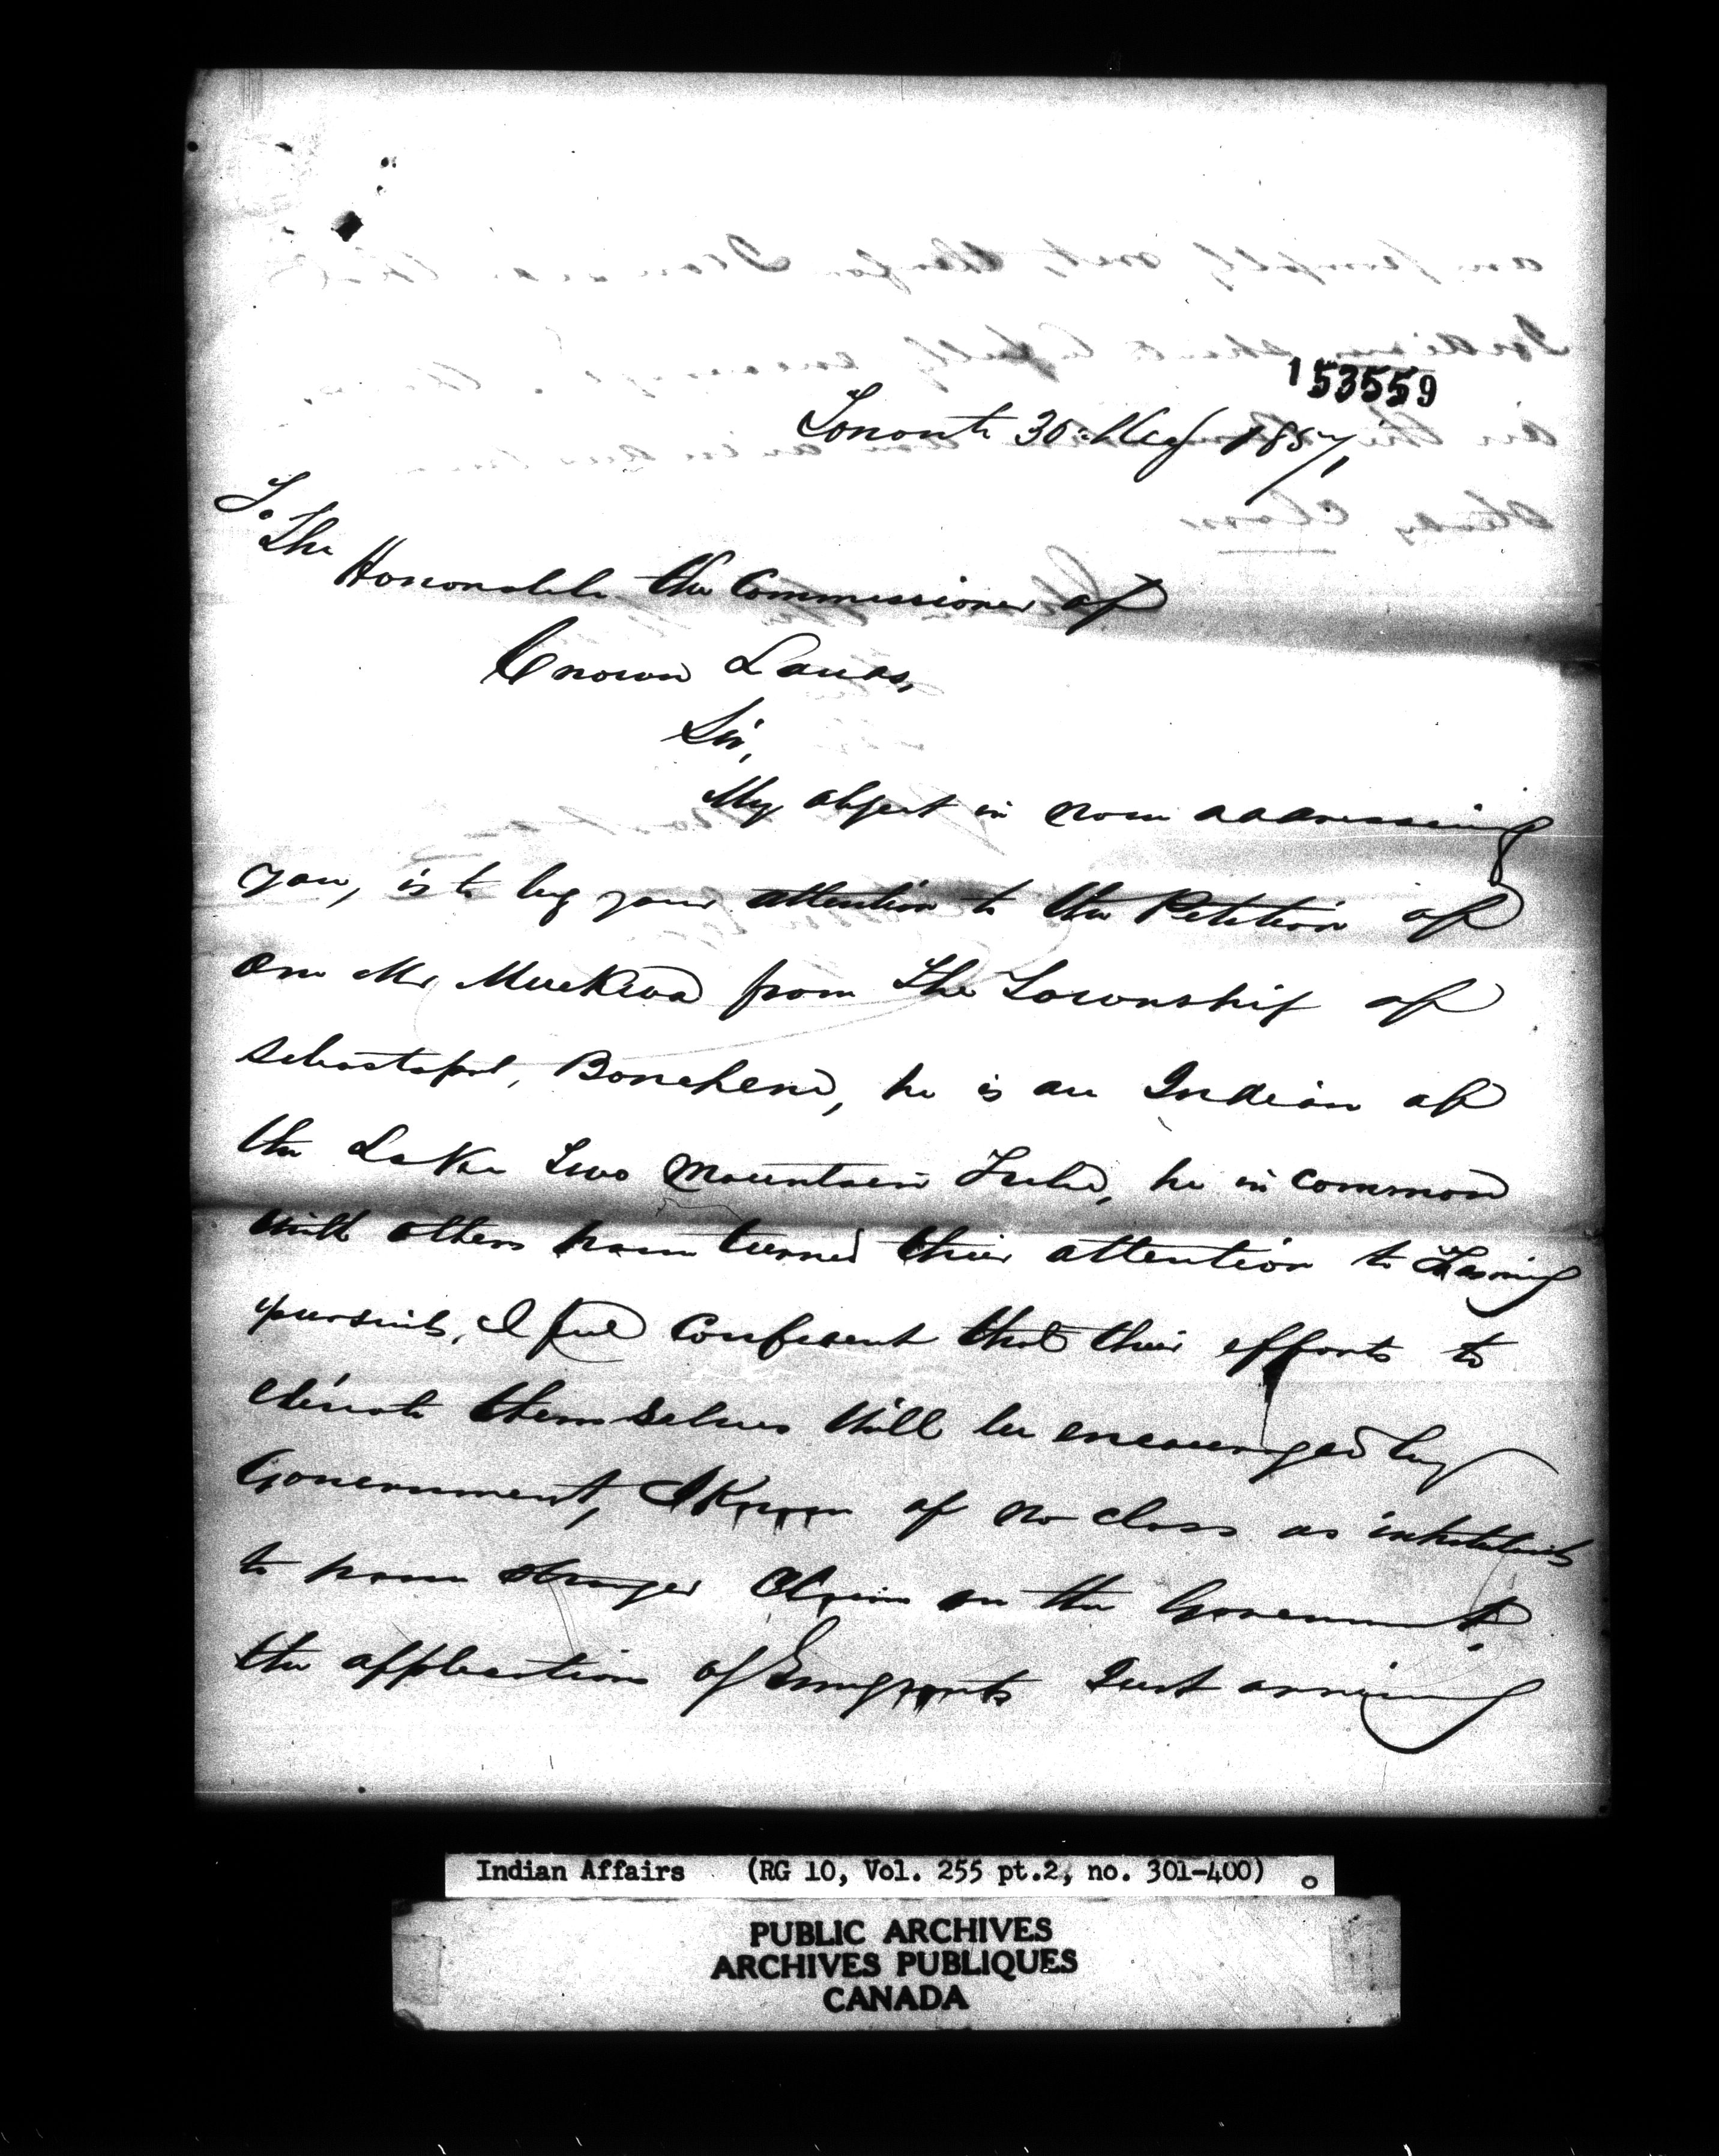 153559
Toronto 30th May 1857,
To
The
Honorable the Commissioner of
Crown Lands,
Sir,
My object in now addressing
you, is to beg your attention to the Petition of
one Mr Muckwa from The Township of
Sebastopol, Bonchere, he is an Indian of
the Lake Two Mountain Tribe, he in common
with others have turned their attention to Farming
pursuits, I feel confident that their efforts to
elevate themselves will be encouraged by
Government, I Know of no class as intitled
to have stronger Claim on the Government.
the application of Emigrants Just arriving
Indian Affairs (RG 10, Vol. 255 pt.2, no. 301-400)
PUBLIC ARCHIVES
ARCHIVES PUBLIQUES
CANADA